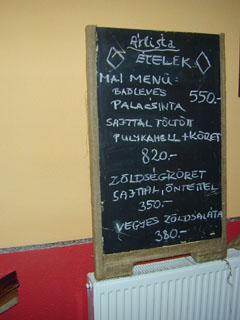 Árlista
ÉTELEK
MAI MENÜ:
BABLEVES 550.-
PALACSINTA
SAJTTAL TÖLTÖTT
PULYKAMELL+KÖRET
820.-
ZÖLDSÉGKÖRET
SAJTTAL, ÖNTETTEL
350.-
VEGYES ZÖLDSALÁTA
380.-